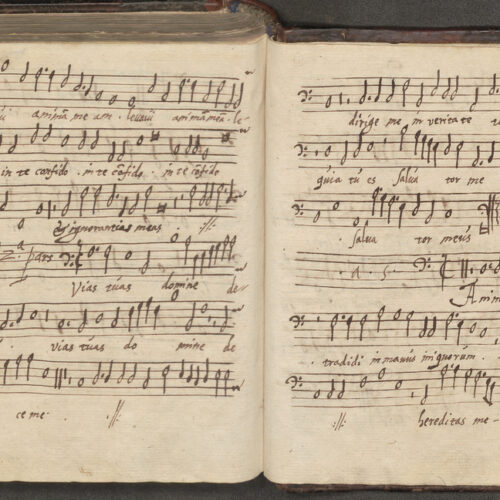 animā me am . levavi animāmeā . le
in te cōfido . in te cōfido . in te cōfido
ignorantias meas . //.
2.a pars
vias túas domine de
. vias túas do mine de
ce me . //.
dirige me in veritate t
quia tú es salva tor me
. salva tor meús
. a . 5 .
Anim
. tradidi in manús iniquorúm .
. //. hereditas me -